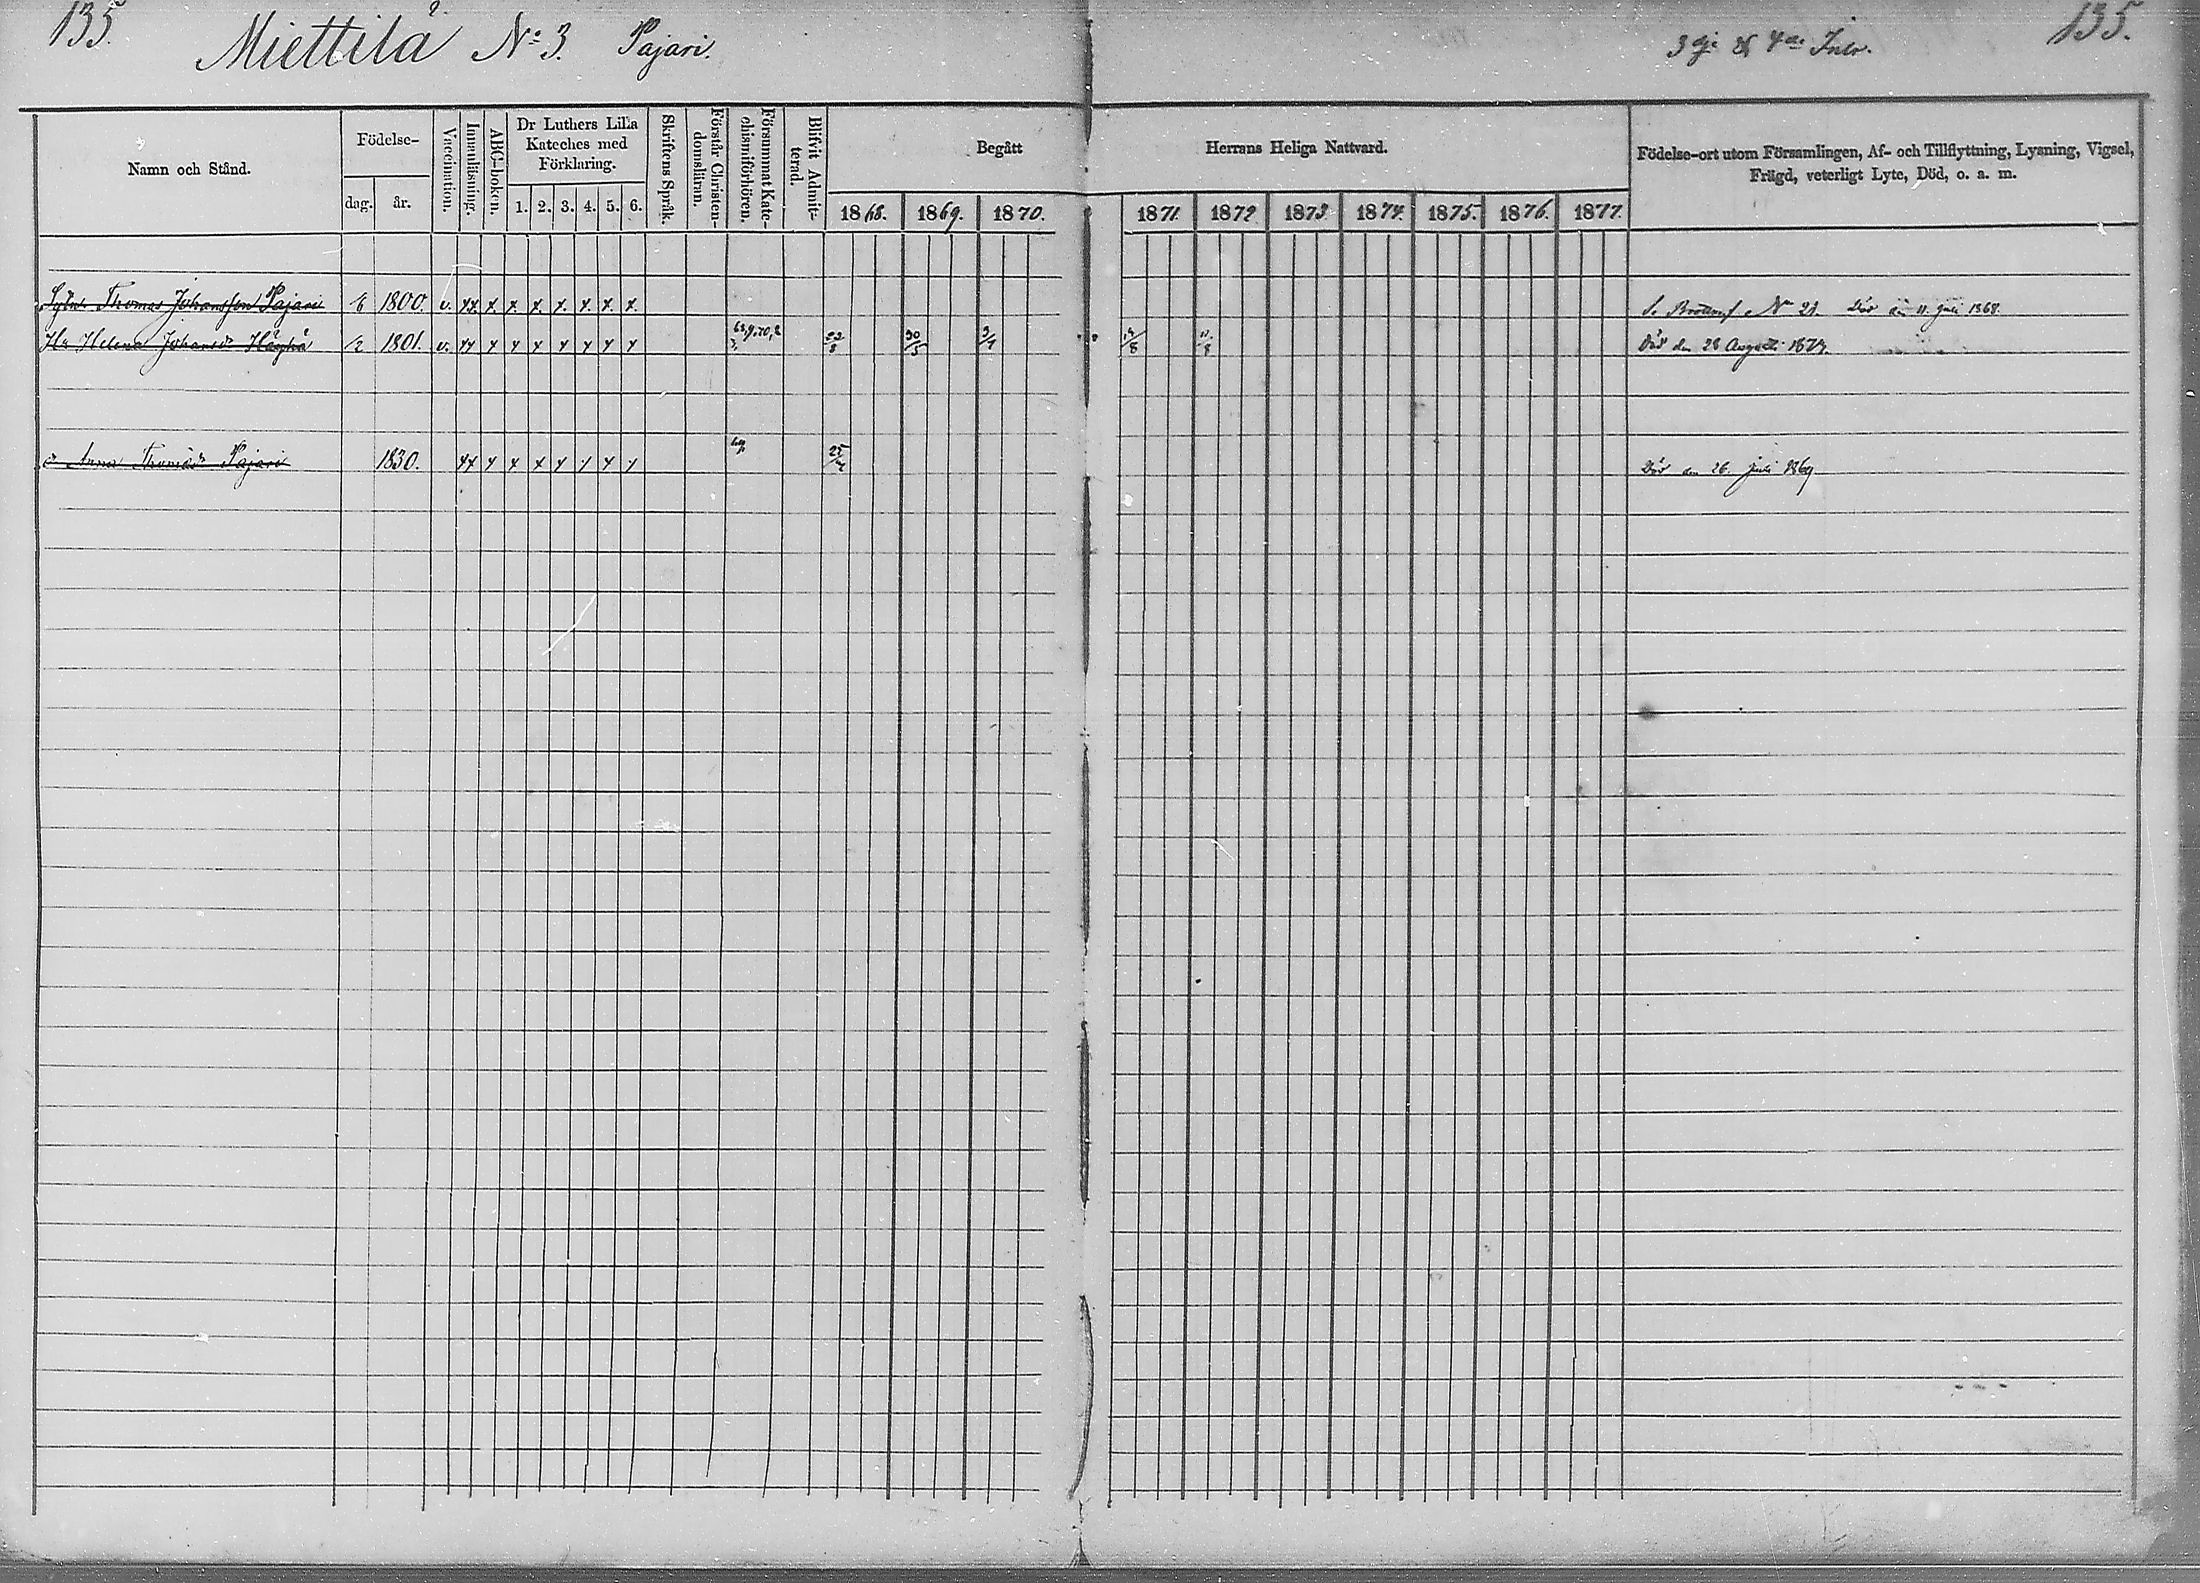 135.
Miettilä No 3. Pajari.
3dje & 4de
135.
Namn och Stånd.
Födelse-
dag. år.
Vaccination.
Innanläsning.
ABC-boken.
Dr Luthers Lilla
Kateches med
Förklaring.
1. 2. 3. 4. 5. 6.
Skriftens Språk.
Förstår Christen-
domsläran.
Försummat Kate-
chismiförhören.
Blifvit Admit-
terad.
Begått Herrans Heliga Nattvard.
1868. 1869. 1870. 1871. 1872. 1873. 1874. 1875. 1876. 1877.
Födelse-ort utom Församlingen, Af- och Tillflyttning, Lysning, Vigsel,
Frägd, veterligt Lyte, Död, o. a. m.
Thomas Johansson Pajari 6 1800. v. xx. x. x. x. x. x. x. x. No 21. Död den 11 Juli 1868.
Hu Helena Johansdr 2 1801. v. xx x x x x x x x 30/5 Död den 28 Augusti
dr Anna Thomasdr Pajari 1830. xx x x x x x x x Död den 26. Juli 1869